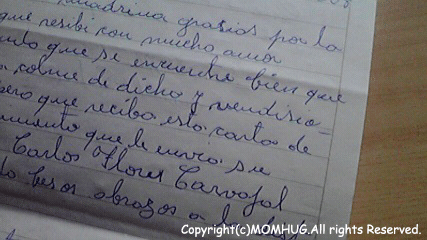 madrina gracias por la
que recibi con mucho amor
que se encuentre bien que
colme de dicha y vendicio-
que reciba esta carta de
que le envia su
Carlos Flores Carvajal
besos abrazos a
Copyright(c)MOMHUG.All rights Reserved.